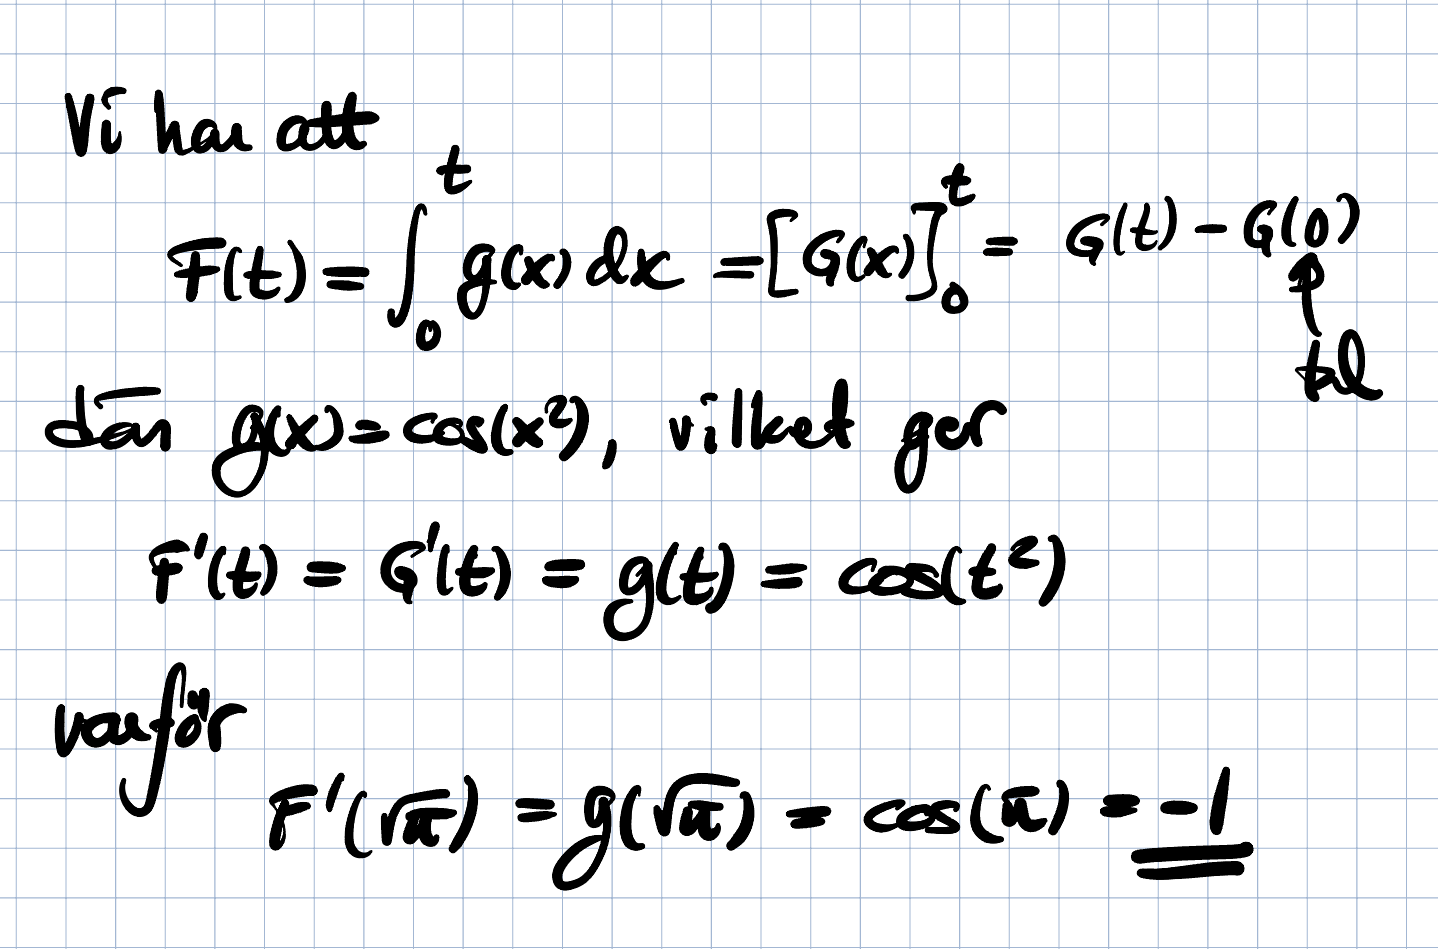 Vi har att
F(t) = ∫₀ᵗ g(x) dx = [G(x)]₀ᵗ = G(t) - G(0)
tal
där g(x) = cos(x²), vilket ger
F'(t) = G'(t) = g(t) = cos(t²)
varför
F'(√π) = g(√π) = cos(π) = -1